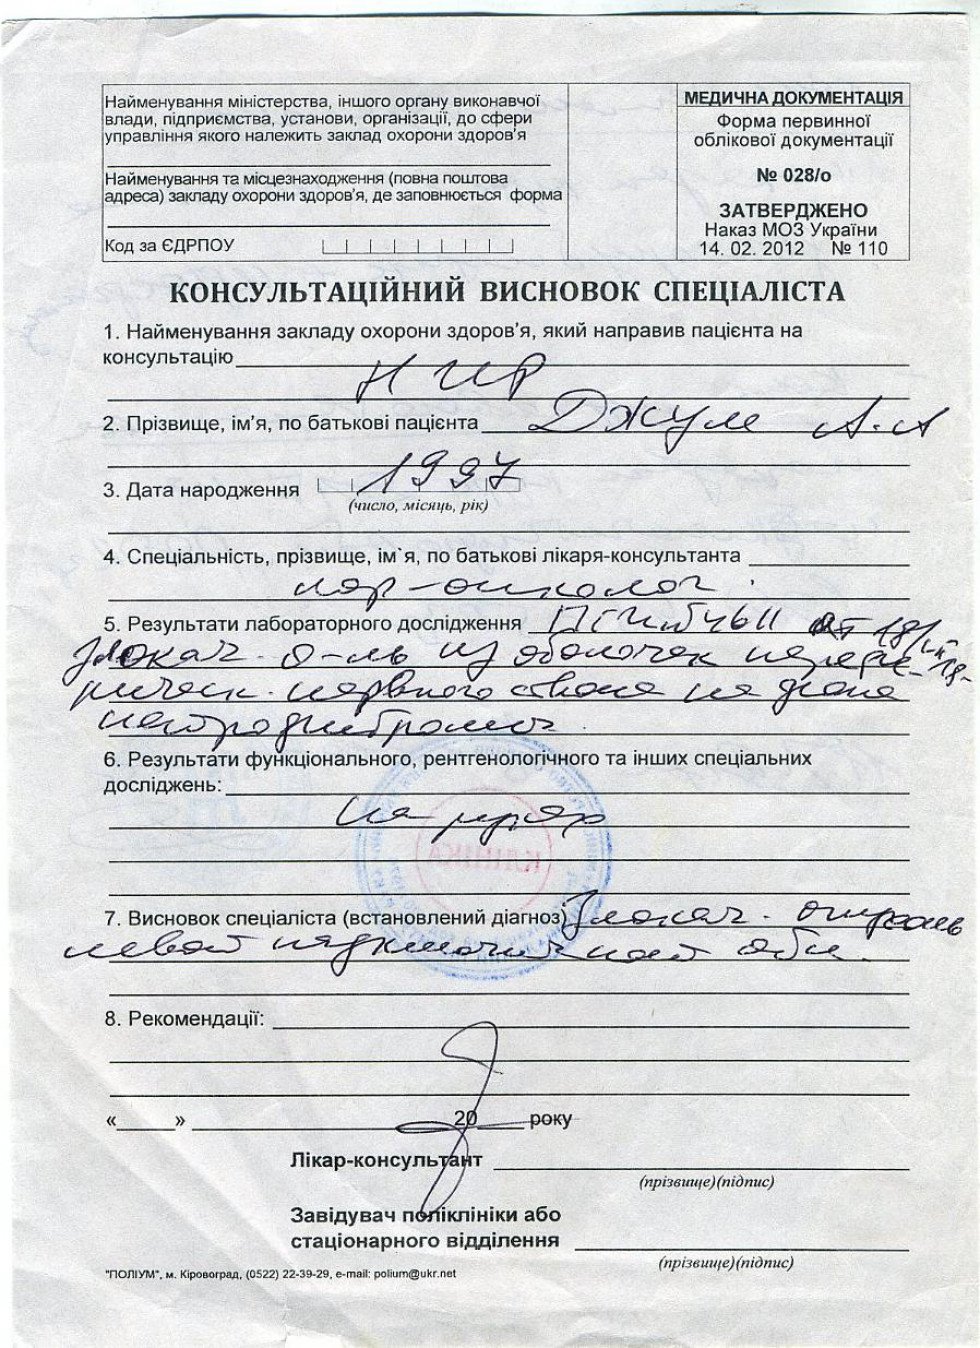 Найменування міністерства, іншого органу виконавчої
влади, підприємства, установи, організації, до сфери
управління якого належить заклад охорони здоров'я
Найменування та місцезнаходження (повна поштова
адреса) закладу охорони здоров'я, де заповнюється форма
Код за ЄДРПОУ
МЕДИЧНА ДОКУМЕНТАЦІЯ
Форма первинної
облікової документації
№ 028/о
ЗАТВЕРДЖЕНО
Наказ МОЗ України
14. 02. 2012 № 110
КОНСУЛЬТАЦІЙНИЙ ВИСНОВОК СПЕЦІАЛІСТА
1. Найменування закладу охорони здоров'я, який направив пацієнта на
консультацію
НИР
2. Прізвище, ім'я, по батькові пацієнта Джум А.А
3. Дата народження 1997
(число, місяць, рік)
4. Спеціальність, прізвище, ім`я, по батькові лікаря-консультанта
лор-онколог.
5. Результати лабораторного дослідження от
Злокач. о-ль из оболочек перифе-
рическ. нервного ствола на фоне
нейрофибромы.
6. Результати функціонального, рентгенологічного та інших спеціальних
досліджень:
на руках
КЛІНІКА
7. Висновок спеціаліста (встановлений діагноз) Злокач. опухоль
левой надключич
8. Рекомендації:
«_____» 20____ року
Лікар-консультант
(прізвище)(підпис)
Завідувач поліклініки або
стаціонарного відділення
(прізвище)(підпис)
"ПОЛІУМ", м. Кіровоград, (0522) 22-39-29, e-mail: polium@ukr.net